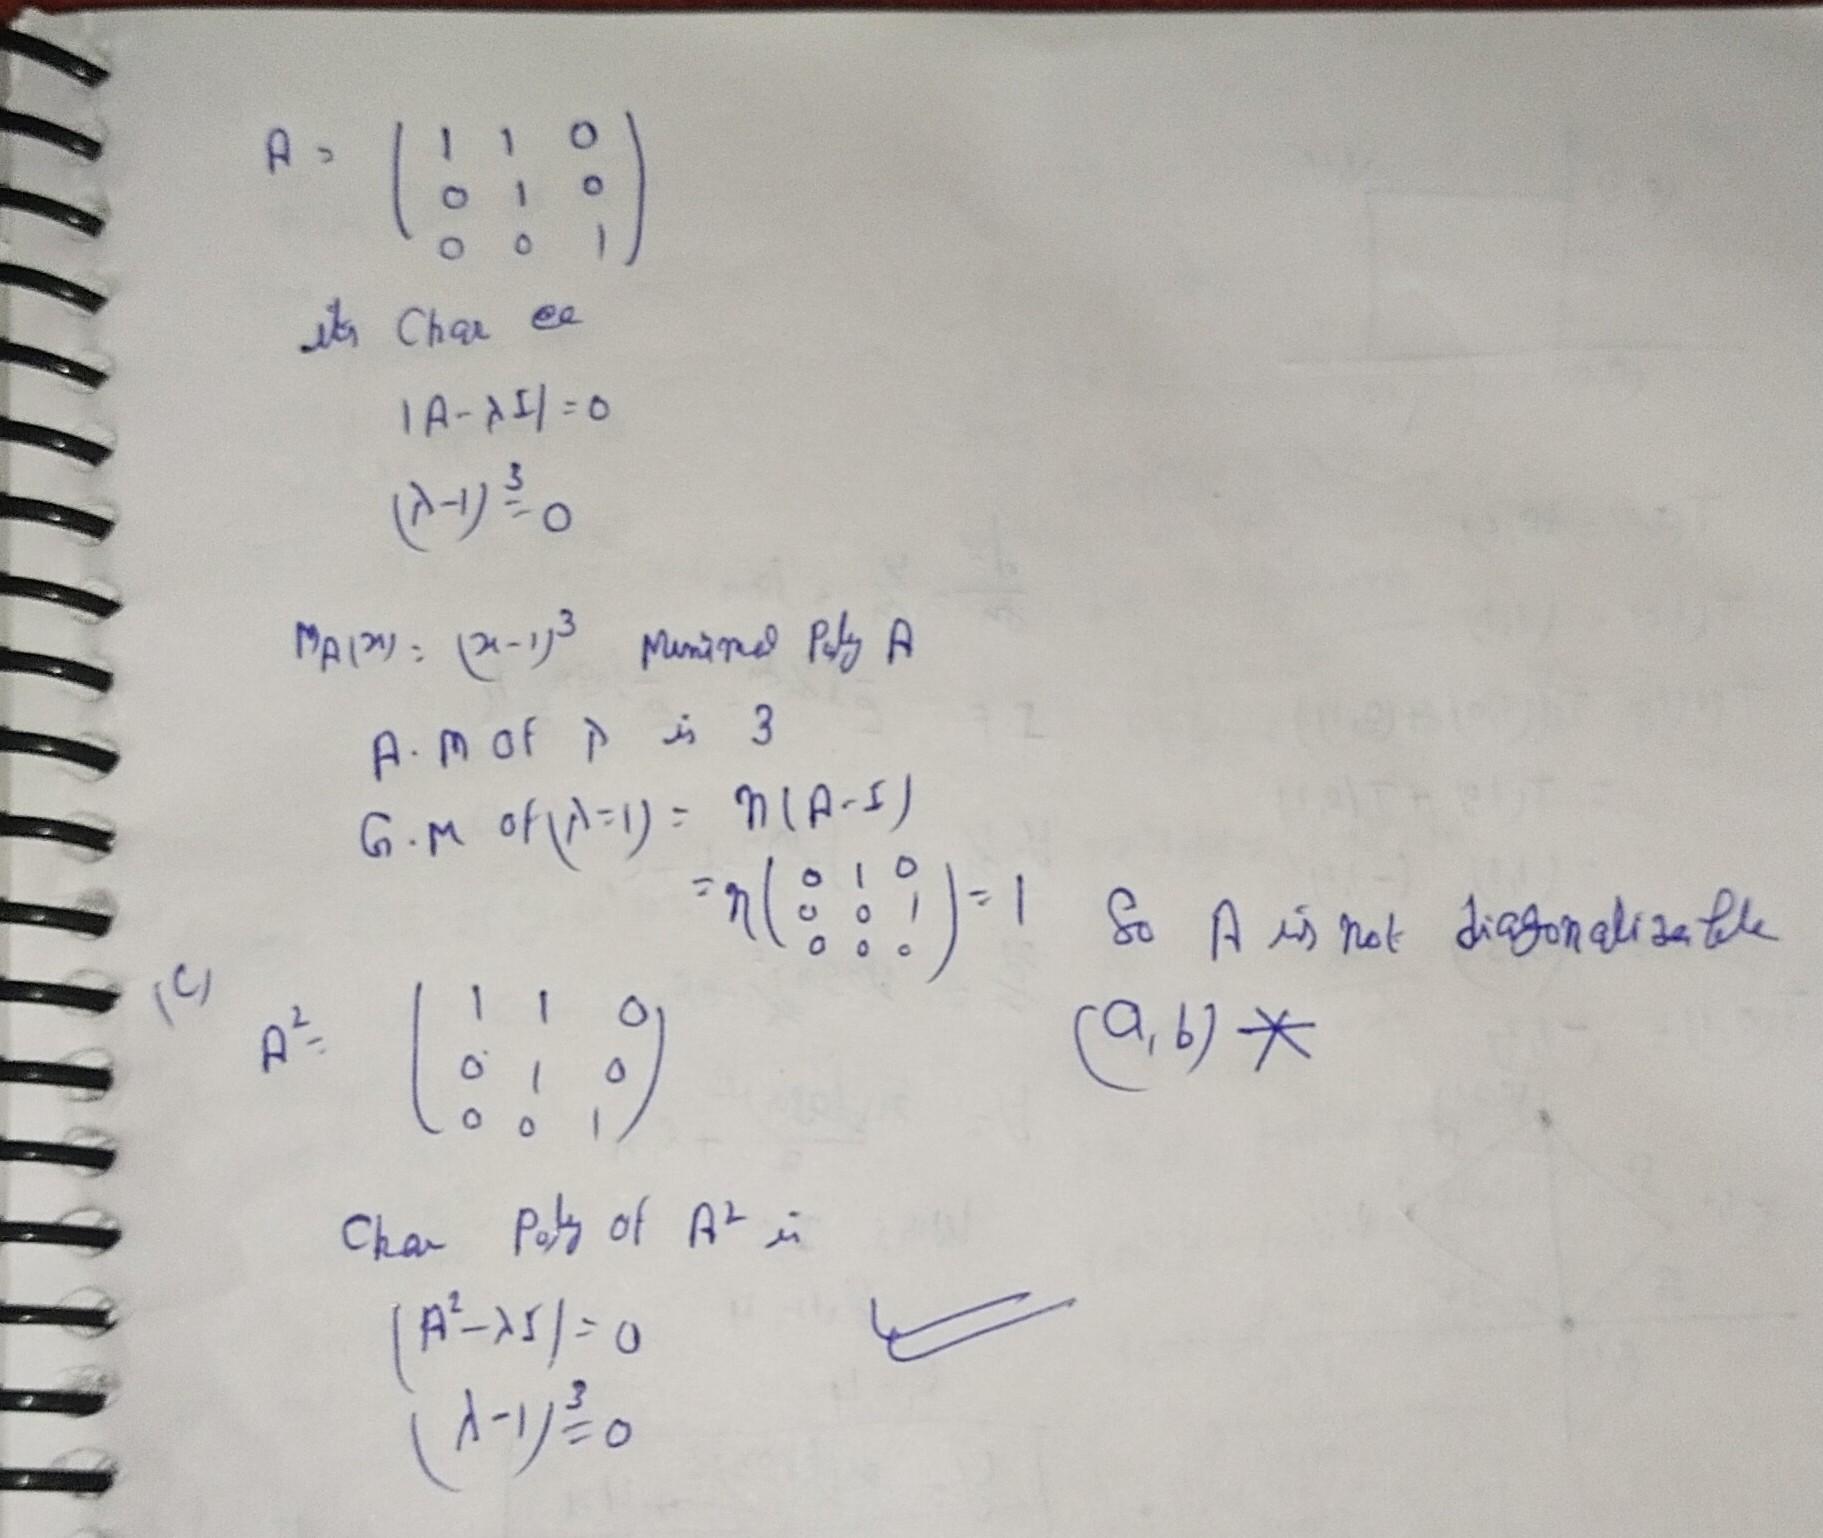 A = ( 1 1 0
0 1 0
0 0 1 )
its Char ee
|A-λI| = 0
(λ-1)³ = 0
m_A(x) = (x-1)³ Minimal Poly A
A.M of λ is 3
G.M of (λ=1) = η(A-I)
= η( 0 1 0
0 0 1
0 0 0 ) = 1 So A is not diagonalizable
(a,b) ✗
(C) A² = ( 1 1 0
0 1 0
0 0 1 )
Char Poly of A² is
|A²-λI| = 0 ✓
(λ-1)³ = 0